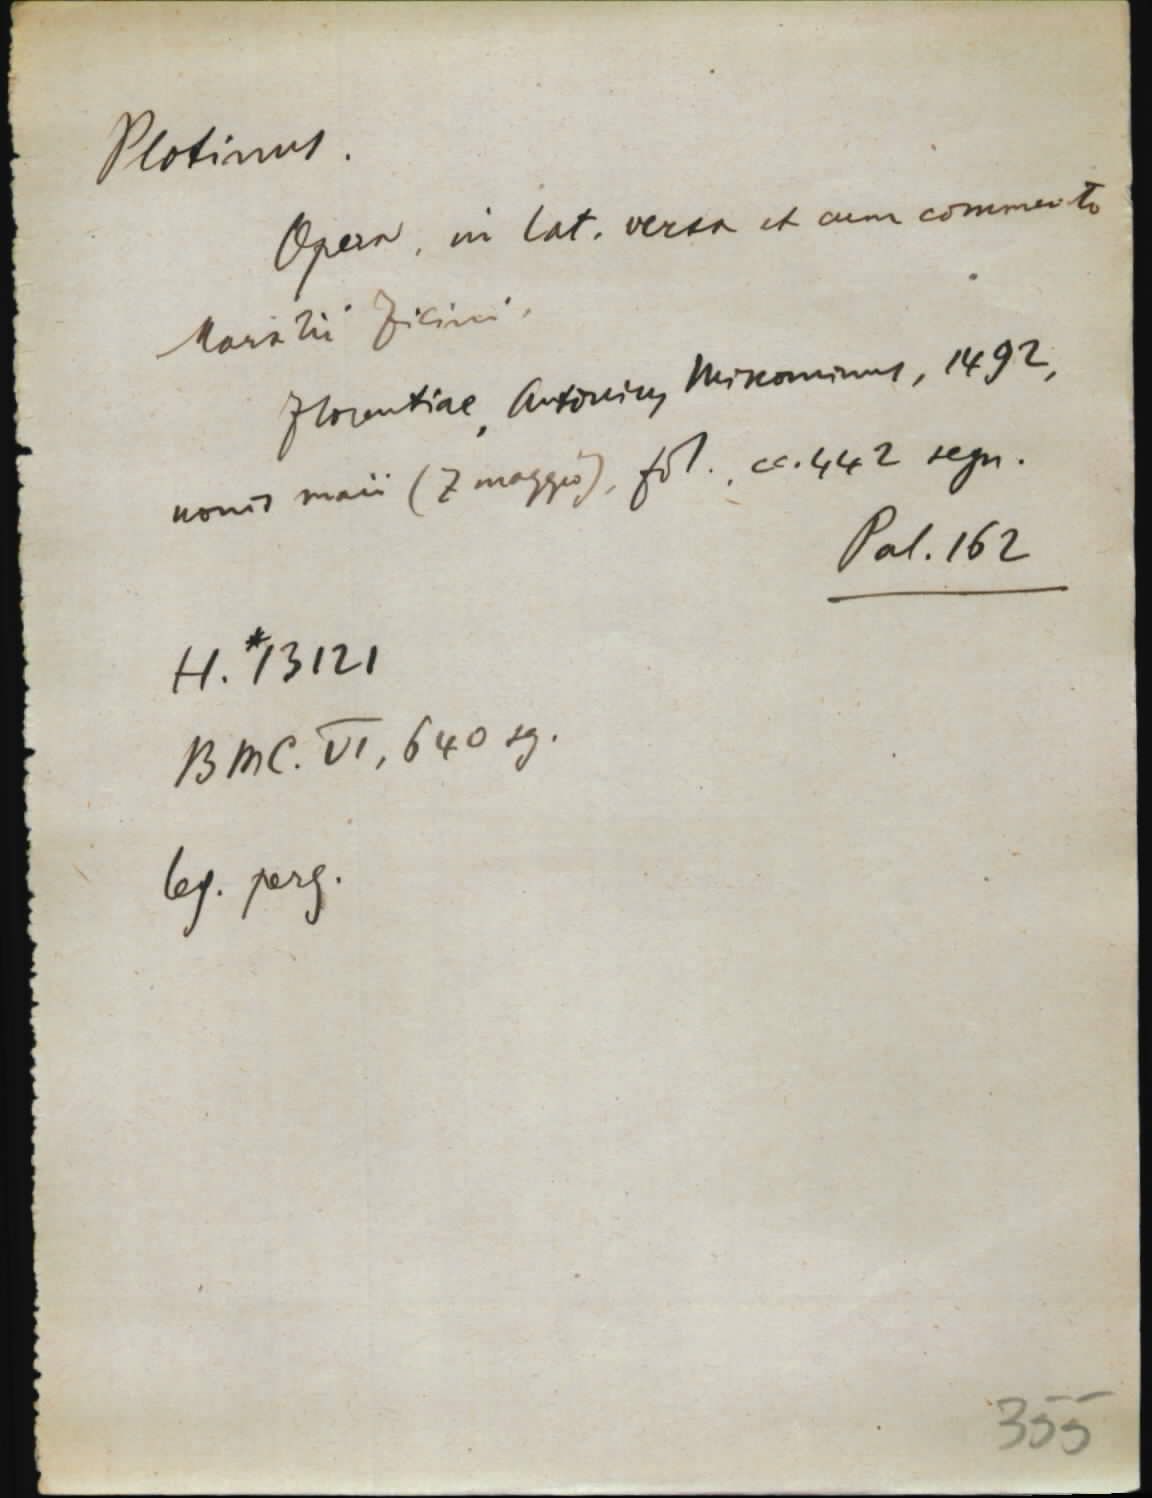 Plotinus.
Opera, in lat. versa et cum commento
Marsilii Ficini.
Florentiae, Antonius Miscominus, 1492,
nonis maii (7 maggio), fol., cc. 442 segn.
Pal. 162
H. *13121
BMC. VI, 640 sg.
leg. perg.
355